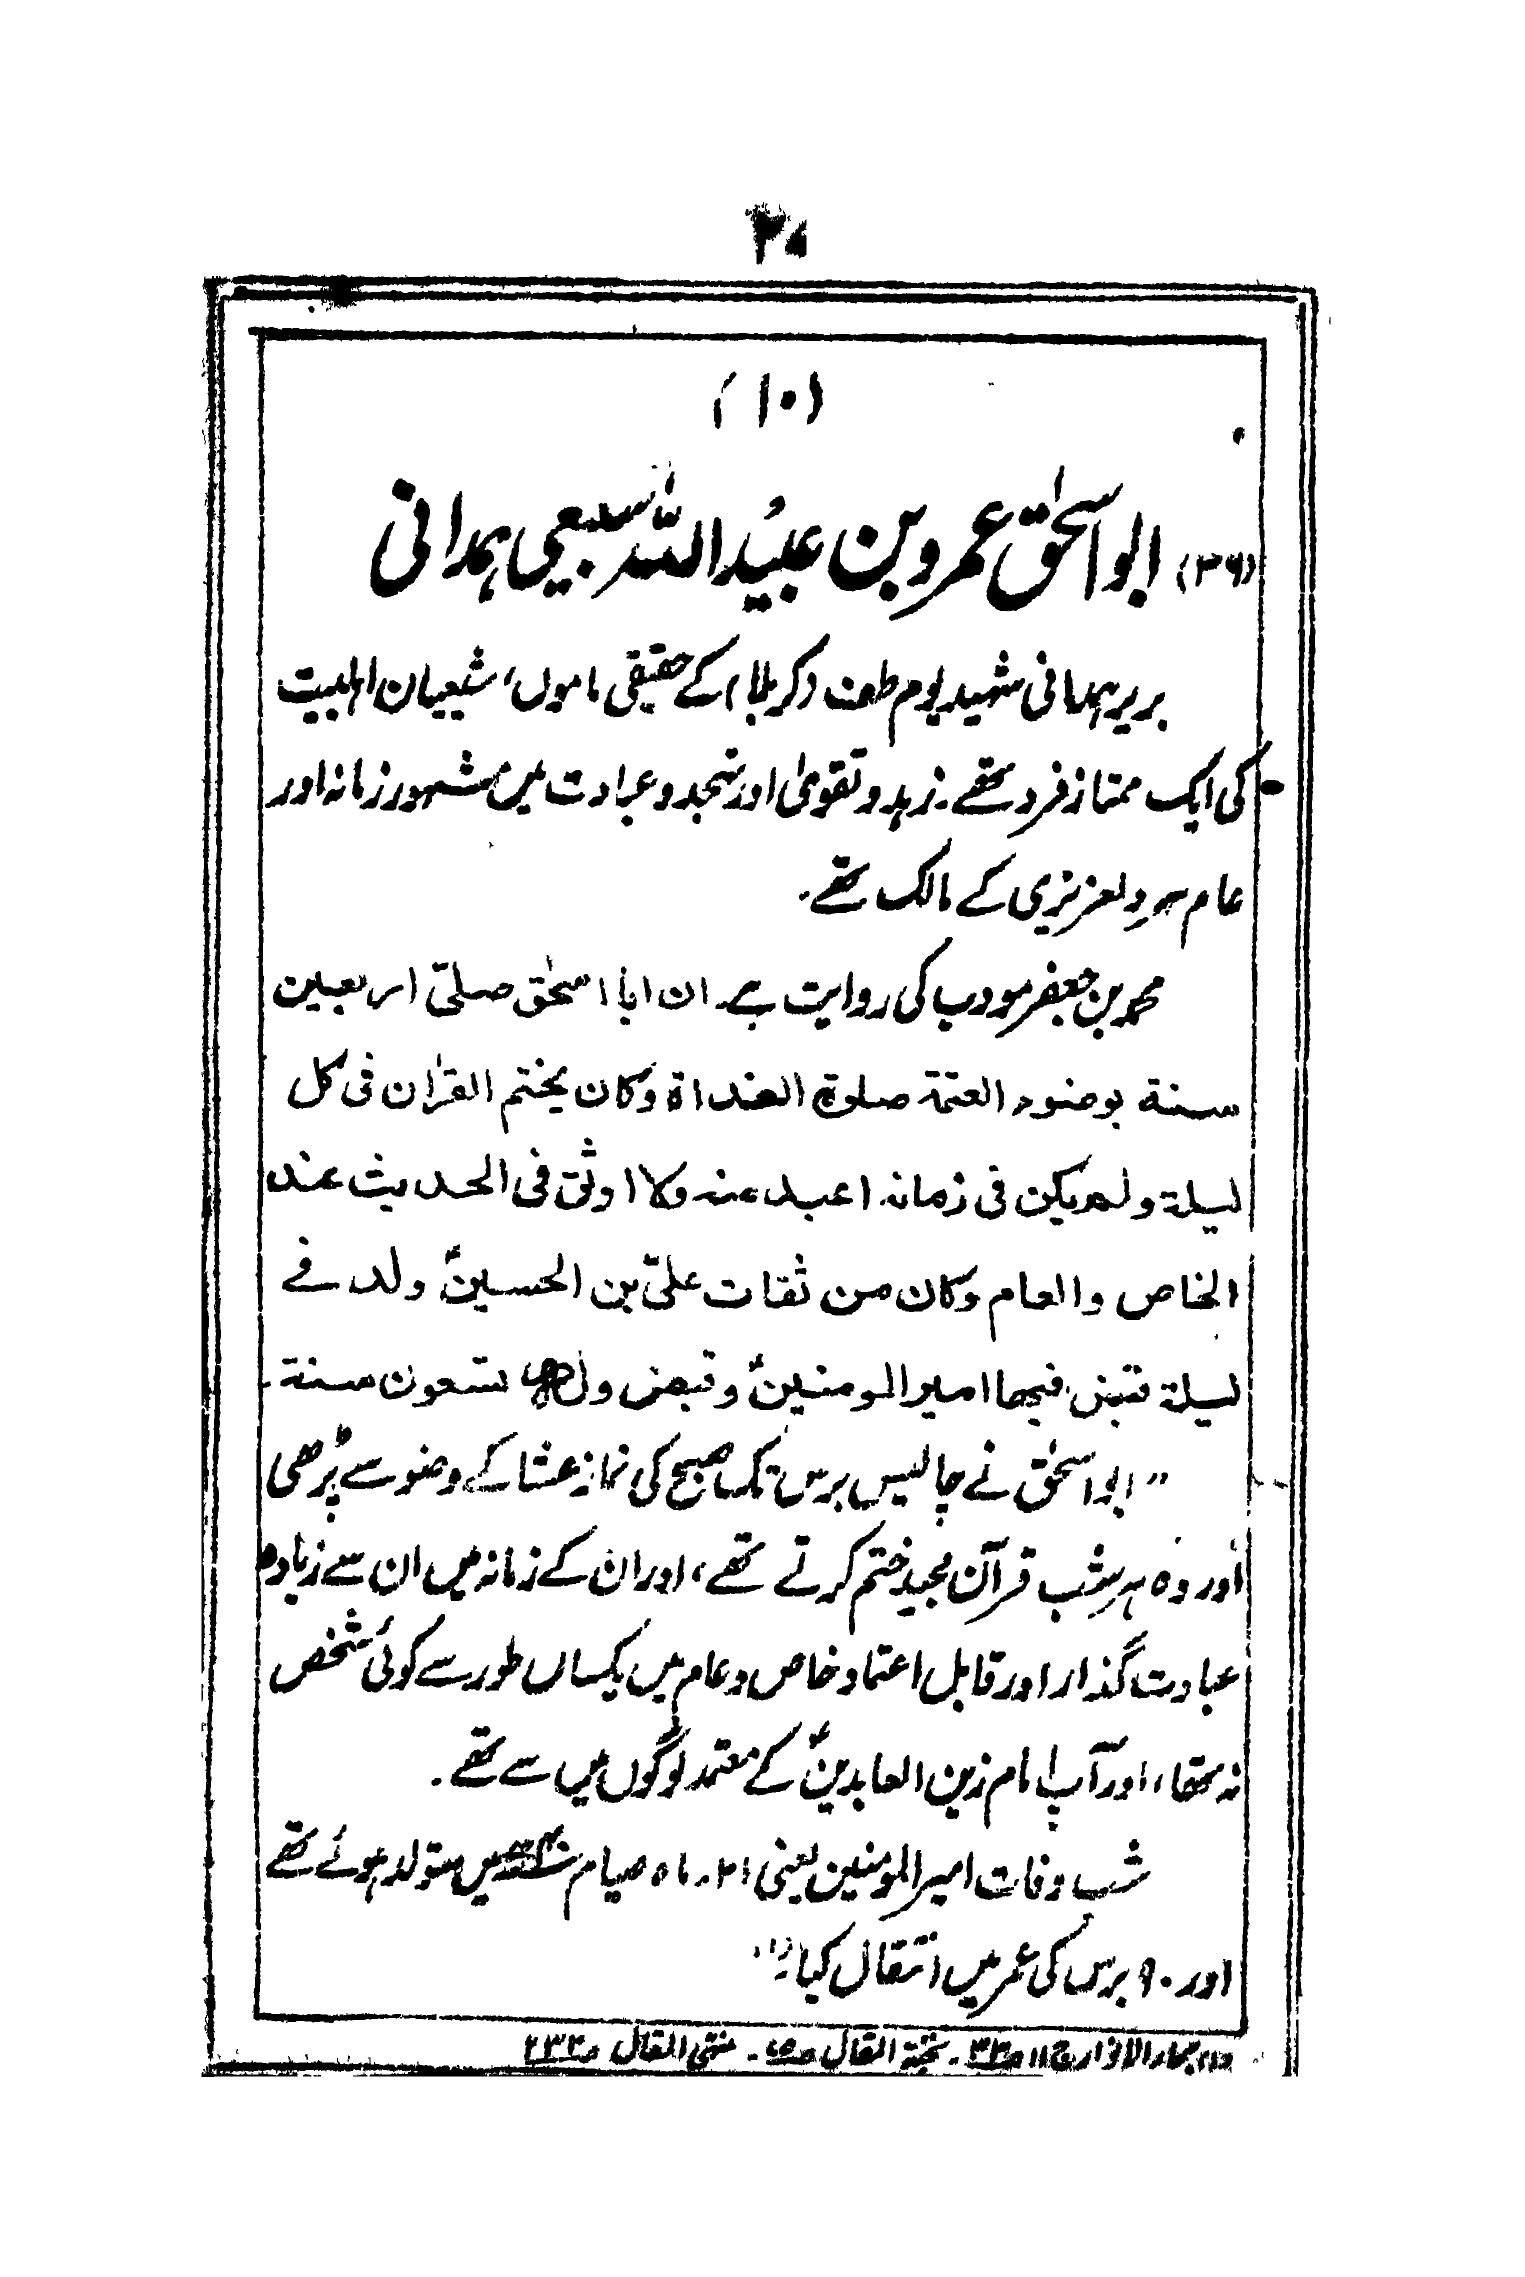 (۱۰)
(۳۶) ابو اسحٰق عمرو بن عبیُد اللہ سبیعی ہمدانی
بریر ہمدانی شہید یوم طف (کربلا) کے حقیقی ماموں، شیعیان اہلبیت
کی ایک ممتاز فرد تھے۔ زہد و تقویٰ اور تہجد و عبادت میں مشہور زمانہ اور
عام ہر دلعزیزی کے مالک تھے۔
محمد بن جعفر مودب کی روایت ہے۔ ان ابا اسحٰق صلّی اربعین
سنة بوضوء العتمة صلوة الغداة وکان یختم القرٰان فی کل
لیلة ولم یکن فی زمانہ اعبد منہ ولا اوثق فی الحدیث عند
الخاص والعام وکان من ثقات علیّ بن الحسینؑ ولد فے
لیلة قبض فیها امیر المومنینؑ وقبض ولہ تسعون سنة۔
"ابو اسحٰق نے چالیس برس تک صبح کی نماز عشا کے وضو سے پڑھی
اور وہ ہر شب قرآن مجید ختم کرتے تھے، اور ان کے زمانہ میں ان سے زیادہ
عبادت گذار اور قابل اعتماد خاص و عام میں یکساں طور سے کوئی شخص
نہ تھا، اور آپ امام زین العابدینؑ کے معتمد لوگوں میں سے تھے۔
شب وفات امیر المومنین یعنی ۲۱۔ ماہ صیام میں متولد ہوئے تھے
اور ۹۰ برس کی عمر میں انتقال کیا (۱)"
(۱) بحار الانوار ج ۱۱ ص۳۳۔ نخبة المقال ص۵۔ منتہی المقال ص۲۳۲